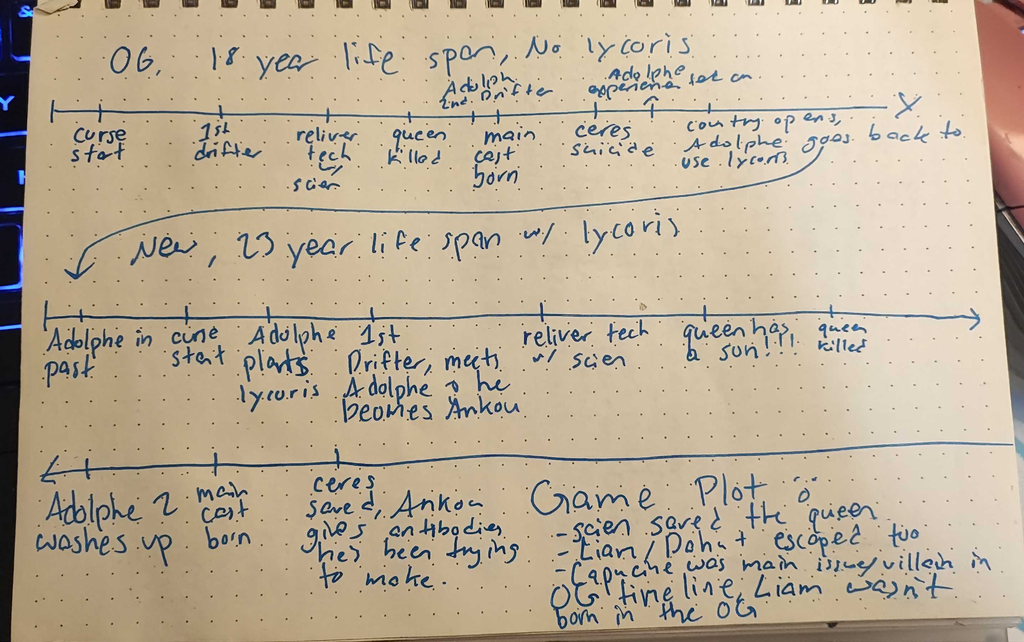 OG, 18 year life span, No lycoris
Adolph
2nd Drifter
Adolphe
experience set on
curse
start
1st
drifter
reliver
tech w/
scien
queen
killed
main
cast
born
ceres
suicide
country opens,
Adolphe goes back to
use lycoris
New, 23 year life span w/ lycoris
Adolphe in
past
curse
start
Adolphe
plants
lycoris
1st
Drifter, meets
Adolphe & he
becomes Ankou
reliver tech
w/ scien
queen has
a son!!!
queen
killed
Adolphe 2
washes up
main
cast
born
ceres
saved, Ankou
gives antibodies
he's been trying
to make.
Game Plot
- scien saved the queen
- Lian/Dahut escaped too
- Capucine was main issue/villain in
OG time line, Liam wasn't
born in the OG